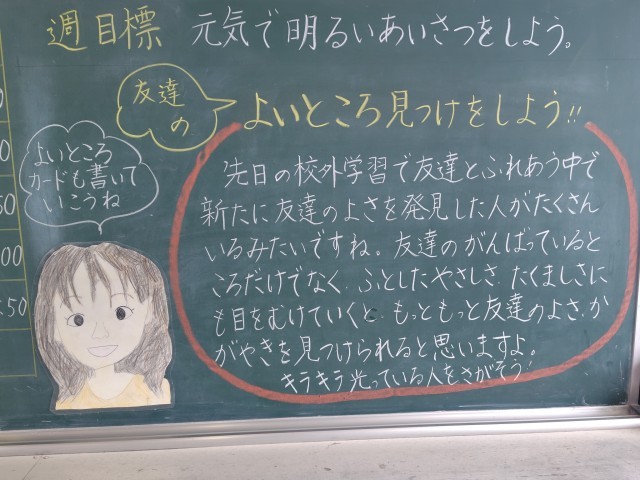 週目標 元気で明るいあいさつをしよう。
友達
の
よいところ見つけをしよう!!
よいところ
カードも書いて
いこうね
先日の校外学習で友達とふれあう中で
新たに友達のよさを発見した人がたくさん
いるみたいですね。友達のがんばっていると
ころだけでなく、ふとしたやさしさ、たくましさに
も目をむけていくと、もっともっと友達のよさ、か
がやきを見つけられると思いますよ。
キラキラ光っている人をさがそう!
0
0
50
00
:50